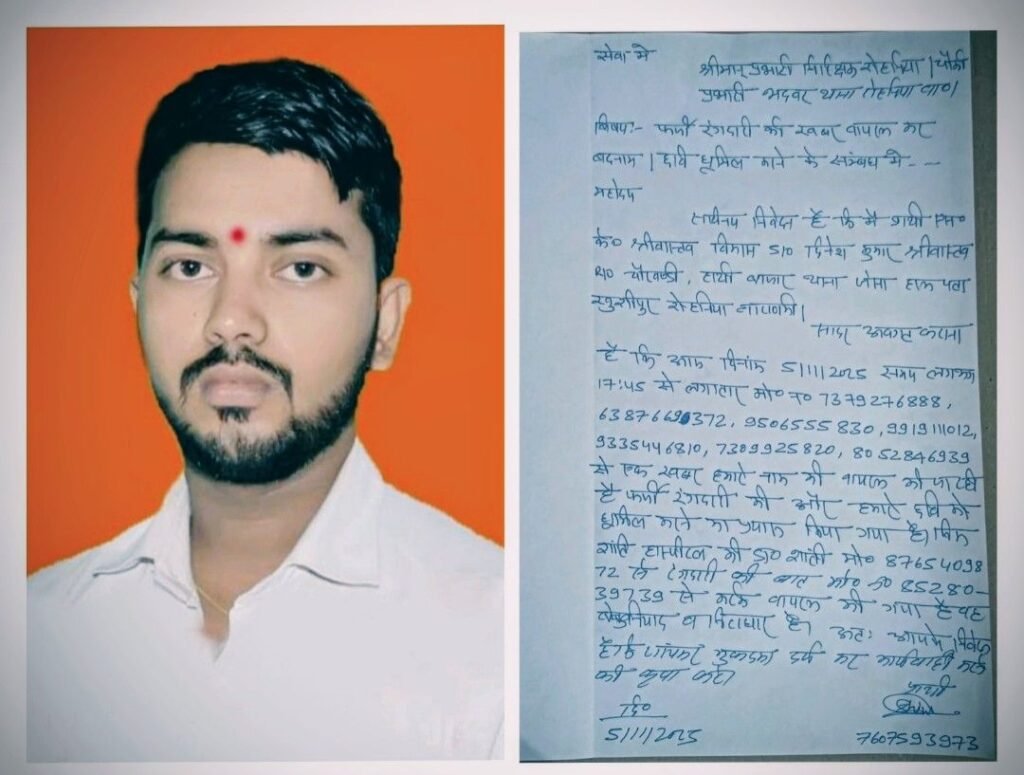 सेवा में
श्रीमान् प्रभारी निरीक्षक रोहनिया / चौकी
प्रभारी भदवर थाना रोहनिया वा०।
विषय:- फर्जी रंगदारी की खबर वायरल कर
बदनाम / छवि धूमिल करने के सम्बंध में - --
महोदय
सविनय निवेदन है कि मैं प्रार्थी
के० श्रीवास्तव S/O दिनेश कुमार श्रीवास्तव
R/O बाजार थाना हाल पता
रोहनिया वाराणसी।
सादर अवगत कराना
है कि आज दिनांक 5/11/2025 समय लगभग
17:45 से लगातार मो० न० 7379276888,
9506555830, 991911012,
9335446810, 7309925820, 8052846939
से एक खबर हमारे नाम की वायरल की जा रही
है फर्जी रंगदारी की और हमारे छवि को
धूमिल करने का प्रयास किया गया है।
हास्पीटल की डा० मो० 87654098
72 से रंगदारी की बात मो० न० 85280-
39739 से करके वायरल की गया है वह
बेबुनियाद व निराधार है। अतः आपसे निवेदन
है कि जांचकर मुकदमा दर्ज कर कार्यवाही करने
की कृपा करें।
प्रार्थी
दि०
5/11/2025 7607593973